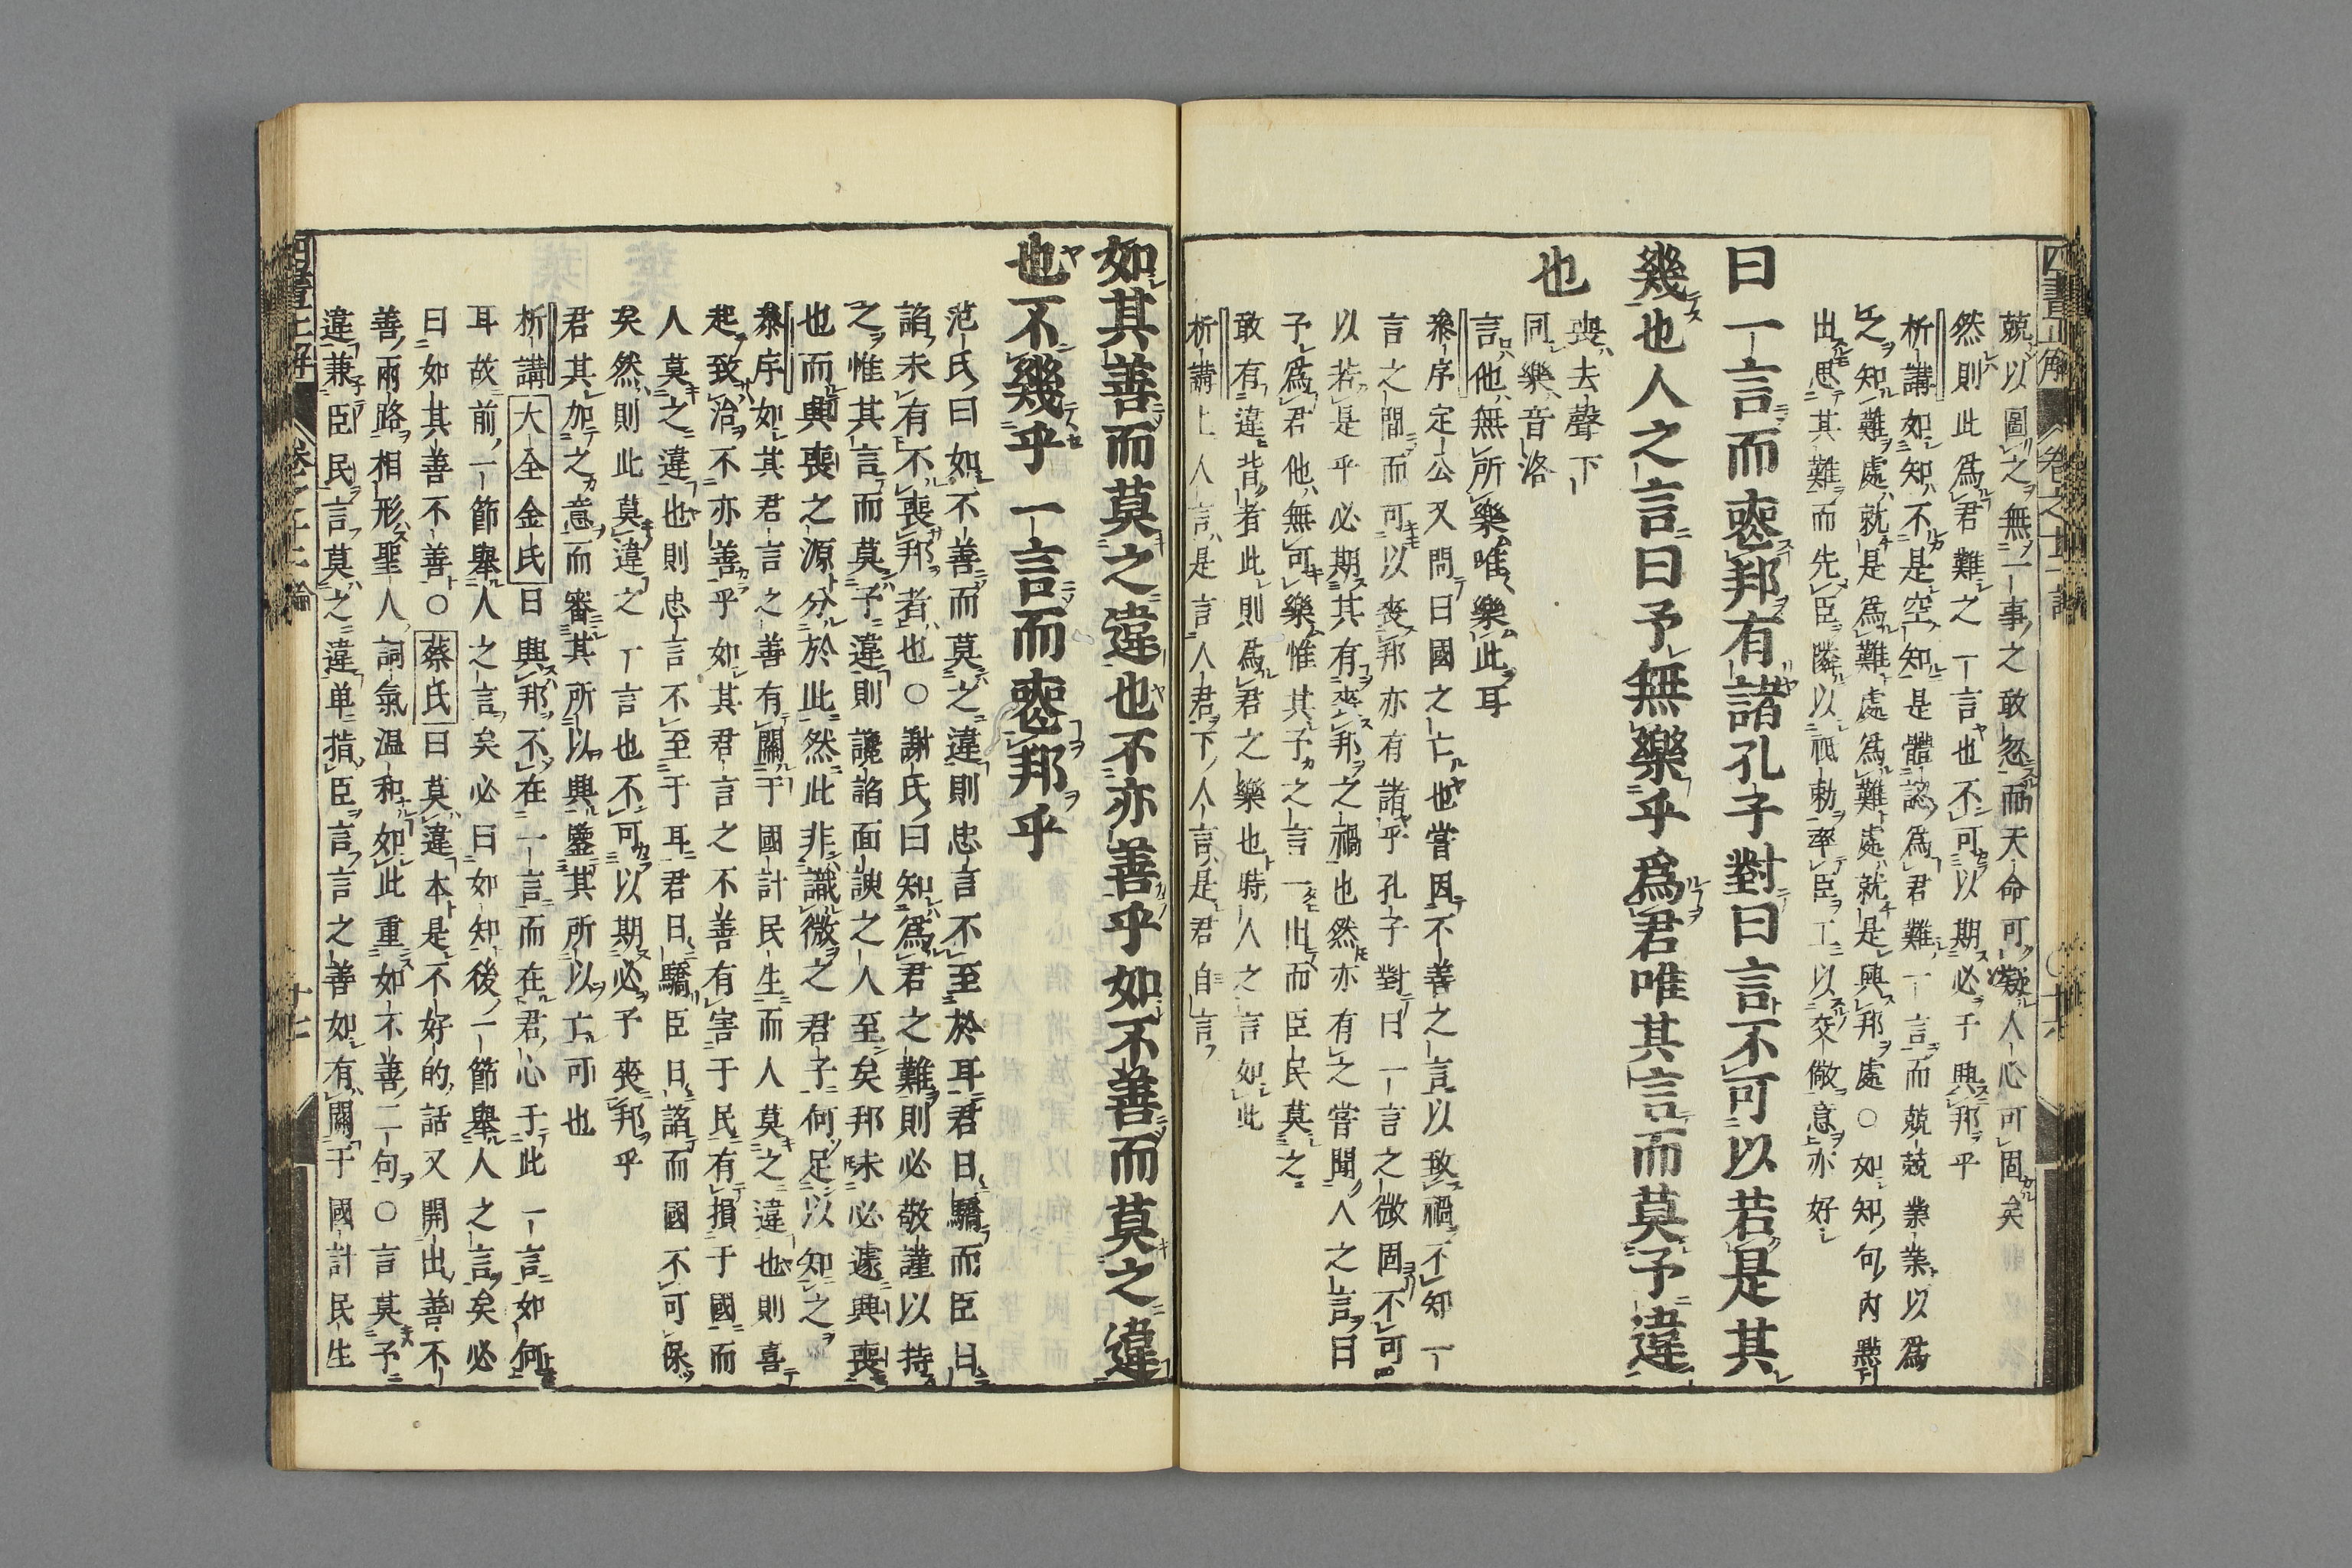 四書正解 卷之十二論
兢以圖之無一事之敢忽而天命可凝人心可固矣
然則此爲君難之一言也不可以期必于興邦乎
析講如知不是空知是體認爲君難一言而兢兢業業以爲
之知難處就是爲難處爲難處就是興邦處○如知句內點
出思其難而先臣隣以祗勅率臣工以交儆意亦好
曰一言而喪邦有諸孔子對曰言不可以若是其
幾也人之言曰予無樂乎爲君唯其言而莫予違
也
喪去聲下
同樂音洛
言他無所樂唯樂此耳
叅序定公又問曰國之亡也當因不善之言以致禍不知一
言之間而可以喪邦亦有諸乎孔子對曰一言之微固不可
以若是乎必期其有喪邦之禍也然亦有之嘗聞人之言曰
予爲君他無可樂惟其予之言一出而臣民莫之
敢有違背者此則爲君之樂也時人之言如此
析講上人言是言人君下人言是君自言
如其善而莫之違也不亦善乎如不善而莫之違
也不幾乎一言而喪邦乎
范氏曰如不善而莫之違則忠言不至於耳君日驕而臣日
諂未有不喪邦者也○謝氏曰知爲君之難則必敬謹以持
之惟其言而莫予違則讒諂面諛之人至矣邦未必遽興喪
也而興喪之源分於此然此非識微之君子何足以知之
叅序如其君言之善有關于國計民生而人莫之違也則喜
起致治不亦善乎如其君言之不善有害于民有損于國而
人莫之違也則忠言不至于耳君日驕臣日諂而國不可保
矣然則此莫違之一言也不可以期必予喪邦乎
君其加之意而審其所以興鑒其所以亡可也
析講大全金氏曰興邦不在一言而在君心于此一言如何
耳故前一節舉人之言矣必曰如知後一節舉人之言矣必
曰如其善不善○蔡氏曰莫違本是不好的話又開出善不
善兩路相形聖人詞氣溫和如此重如不善二句○言莫予
違兼臣民言莫之違单指臣言言之善如有關于國計民生
四書正解 卷之十二論